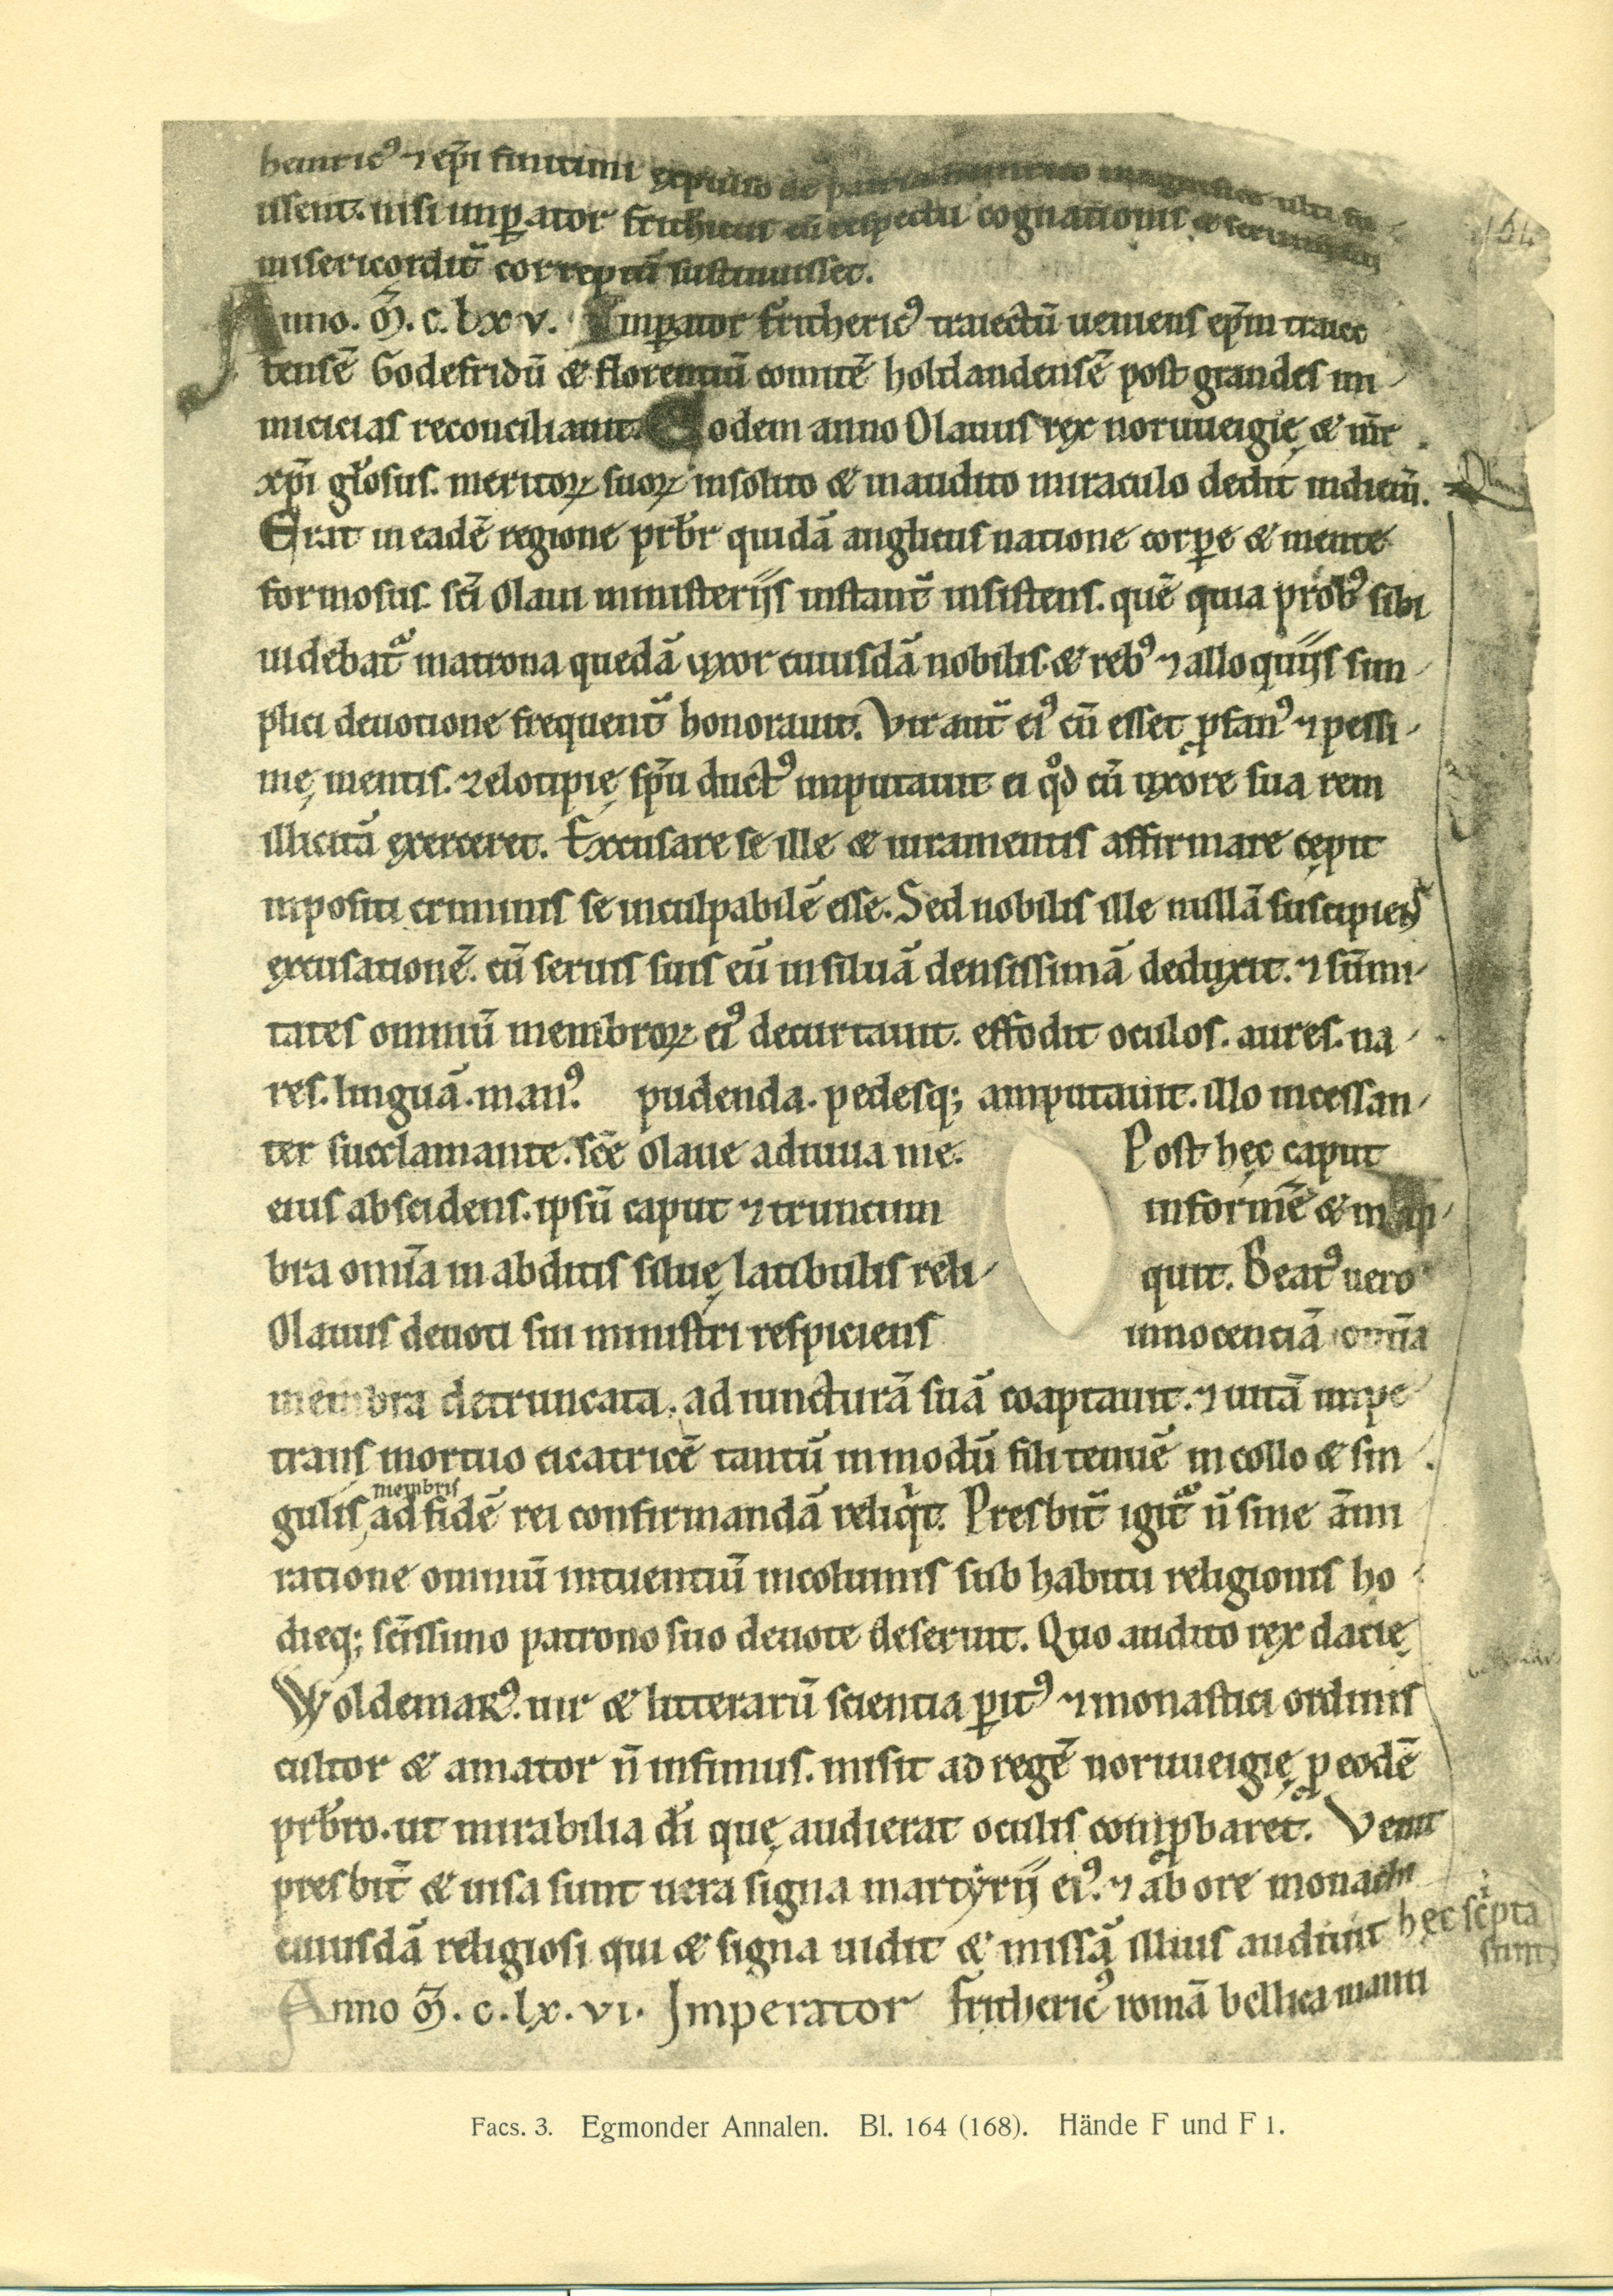 heinric᷒ ⁊ ep̄i
issent. nisi imꝑator frithericus cū respectu cognationis &
misericordit̄ correptū sustinuisset.
Anno. m̄. c. lxv. Imꝑator fritheric᷒ traiectū ueniens ep̄m traiec
tensē Godefridū & florentiū comitē holdandensē post grandes ini-
micicias reconciliauit. Eodem anno Olauus rex noruueigię & m̄r
xp̄i gl̄osus. meritoꝝ suoꝝ insolito & inaudito miraculo dedit indiciū.
Erat in eadē regione prb̄r quidā anglicus natione corꝑe & mente
formosus. sc̄i Olaui ministeriis instant̄ insistens. quē quia prob᷒ sibi
uidebat᷑ matrona quedā uxor cuiusdā nobilis & reb᷒ ⁊ alloquiis sim-
plici deuotione frequent̄ honorauit. Vir aut̄ ei᷒ cū esset ꝓfan᷒ ⁊ pessi-
mę mentis. zelotipię sp̄u duct᷒ imputauit ei qd̊ cū uxore sua rem
illicitā exerceret. Excusare se ille & iuramentis affirmare cępit
inpositi criminis se inculpabilē esse. Sed nobilis ille nullā suscipiens
excusationē. cū seruis suis eū in siluā densissimā deduxit. ⁊ sūmi-
tates omniū membroꝝ ei᷒ decurtauit. effodit oculos. aures. na-
res. linguā. man᷒. pudenda. pedesq; amputauit. illo incessan-
ter succlamante. sc̄e Olaue adiuua me. Post hęc caput
eius abscidens. ipsū caput ⁊ truncum informē &
bra omīa in abditis siluę latibulis reli- quit. Beat᷒ uero
Olauus deuoti sui ministri respiciens innocentiā omīa
membra detruncata. ad iuncturā suā coaptauit. ⁊ uitā impe
trans mortuo cicatricē tantū in modū fili tenuē in collo & sin-
gulis membris ad fidē rei confirmandā reliqͥt. Presbit̄ igit᷑ n̄ sine āmi
ratione omniū intuentiū incolumis sub habitu religionis ho
dieq; sc̄issimo patrono suo deuote deseruit. Quo audito rex dacię
Woldemar᷒. uir & litterarū scientia ꝑit᷒ ⁊ monastici ordinis
cultor & amator n̄ infimus. misit ad regē noruueigię ꝑ eodē
prb̄ro. ut mirabilia dī quę audierat oculis comꝓbaret. Venit
presbit̄ & uisa sunt uera signa martyrii ei᷒. ⁊ ab ore monachi
cuiusdā religiosi qui & signa uidit & missā illius audiuit hęc scͥpta
sunt
Anno m̄. c. lx. vi. Imperator fritheric᷒ romā bellica manu
164
Facs. 3. Egmonder Annalen. Bl. 164 (168). Hände F und F 1.